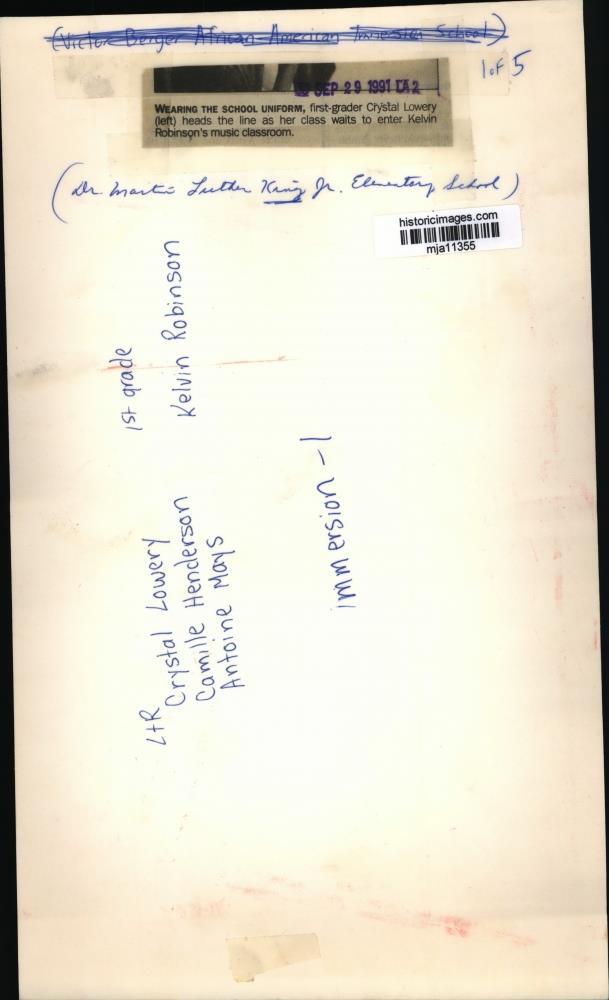 (Victor Berger African American Immersion School)
1 of 5
SEP 29 1991 LA2
WEARING THE SCHOOL UNIFORM, first-grader Crystal Lowery
(left) heads the line as her class waits to enter Kelvin
Robinson's music classroom.
(Dr. Martin Luther King Jr. Elementary School)
historicimages.com
mja11355
1st grade
Kelvin Robinson
LtR
Crystal Lowery
Camille Henderson
Antoine Mays
immersion - 1